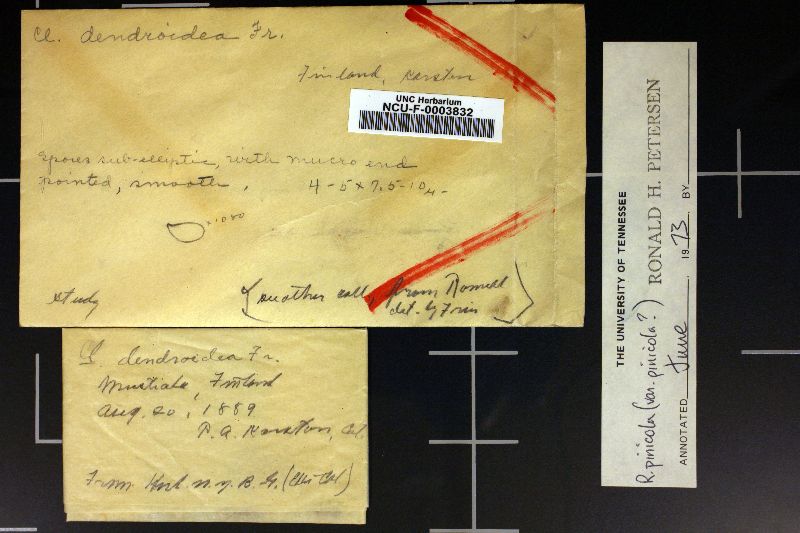 Cl. dendroidea Fr.
Finland, Karsten
UNC Herbarium
NCU-F-0003832
Spores sub-elliptic, with mucro end
pointed, smooth. 4-5 x 7.5-10 μ-
x 1080
Study
(another coll, from Romell
det. by Fries)
Cl. dendroidea Fr.
Mustiala, Finland
Aug. 20, 1889
P. A. Karsten, Col
From Herb. N. Y. B. G.
THE UNIVERSITY OF TENNESSEE
R. pinicola (var. pinicola?) RONALD H. PETERSEN
ANNOTATED June 1973 BY